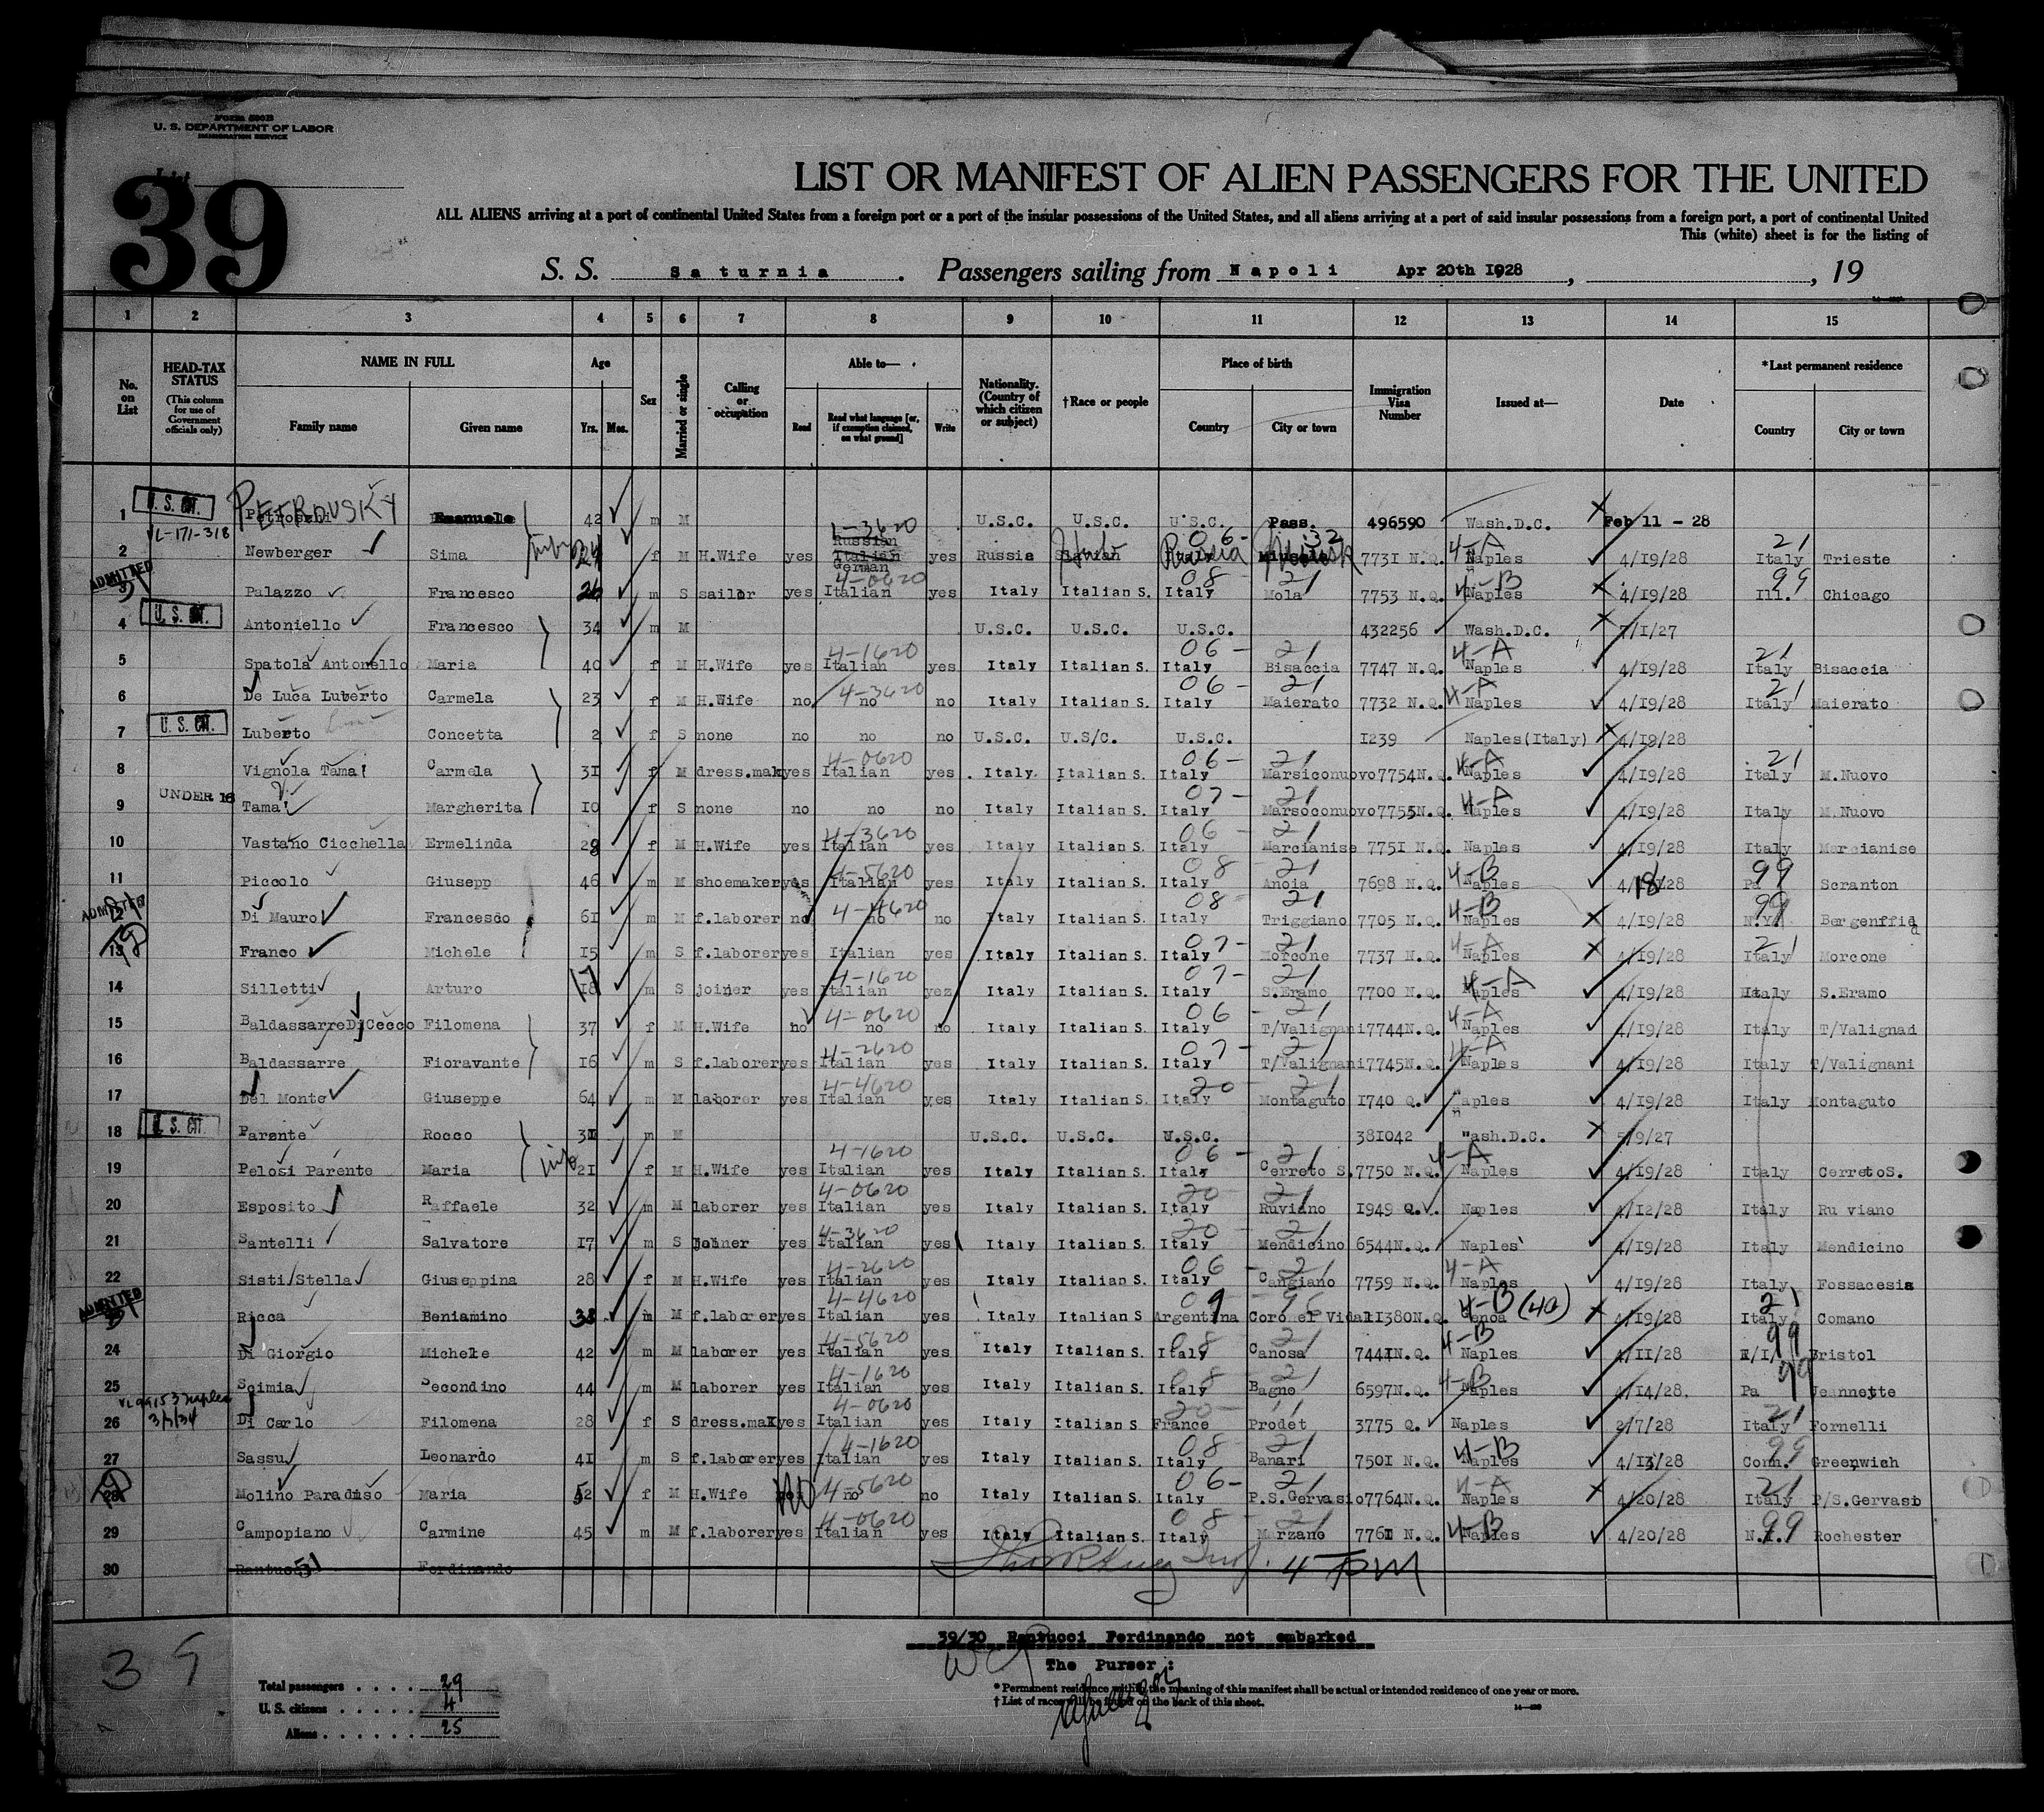 FORM 500B
U. S. DEPARTMENT OF LABOR
IMMIGRATION SERVICE
List
39
LIST OR MANIFEST OF ALIEN PASSENGERS FOR THE UNITED
ALL ALIENS arriving at a port of continental United States from a foreign port or a port of the insular possessions of the United States, and all aliens arriving at a port of said insular possessions from a foreign port, a port of continental United
This (white) sheet is for the listing of
S. S. Saturnia. Passengers sailing from Napoli Apr 20th 1928, , 19
1 2 3 4 5 6 7 8 9 10 11 12 13 14 15
No. on List
HEAD-TAX STATUS (This column for use of Government officials only)
NAME IN FULL
Family name Given name
Age
Yrs. Mos.
Sex
Married or single
Calling or occupation
Able to—
Read Read what language [or, if exemption claimed, on what ground] Write
Nationality. (Country of which citizen or subject)
†Race or people
Place of birth
Country City or town
Immigration Visa Number
Issued at—
Date
*Last permanent residence
Country City or town
1 U. S. CIT. PETROVSKY Emanuele 42 m M U.S.C. U.S.C. U.S.C. Pass. 496590 Wash.D.C. Feb 11 - 28
VL-171-318
2 Newberger Sima 24 f M H.Wife yes 1-3620 Russian Italian German yes Russia Russia 06-32 7731 N.Q. 4-A Naples 4/19/28 21 Italy Trieste
ADMITTED
3 Palazzo Francesco 26 m S sailor yes 4-0620 Italian yes Italy Italian S. 08 Italy 21 Mola 7753 N.Q. 4-B Naples 4/19/28 99 Ill. Chicago
4 U. S. CIT. Antoniello Francesco 34 m M U.S.C. U.S.C. U.S.C. 432256 Wash.D.C. 7/1/27
5 Spatola Antonello Maria 40 f M H.Wife yes 4-1620 Italian yes Italy Italian S. 06- Italy 21 Bisaccia 7747 N.Q. 4-A Naples 4/19/28 21 Italy Bisaccia
6 De Luca Luberto Carmela 23 f M H.Wife no 4-3620 no no Italy Italian S. 06- Italy 21 Maierato 7732 N.Q. 4-A Naples 4/19/28 21 Italy Maierato
7 U. S. CIT. Luberto Concetta 2 f S none no no no U.S.C. U.S/C. U.S.C. 1239 Naples(Italy) 4/19/28
8 Vignola Tama' Carmela 31 f M dress.mak yes 4-0620 Italian yes Italy Italian S. 06- Italy 21 Marsiconuovo 7754N.Q. 4-A Naples 4/19/28 21 Italy M.Nuovo
9 UNDER 16 Tama' Margherita 10 f S none no no no Italy Italian S. 07- Italy 21 Marsoconuovo 7755N.Q. 4-A Naples 4/19/28 Italy M.Nuovo
10 Vastano Cicchella Ermelinda 28 f M H.Wife yes 4-3620 Italian yes Italy Italian S. 06- Italy 21 Marcianise 7751 N.Q. Naples 4/19/28 Italy Marcianise
11 Piccolo Giusepp 46 m M shoemaker yes 4-5620 Italian yes Italy Italian S. 08 Italy 21 Anoia 7698 N.Q. 4-B Naples 4/18/28 99 Pa Scranton
ADMITTED
12 Di Mauro Francesco 61 m M f.laborer no 4-4620 no no Italy Italian S. 08 Italy 21 Triggiano 7705 N.Q. 4-B Naples 4/19/28 99 N.Y. Bergenffid
13 Franco Michele 15 m S f.laborer yes Italian yes Italy Italian S. 07- Italy 21 Morcone 7737 N.Q. 4-A Naples 4/19/28 21 Italy Morcone
14 Silletti Arturo 17 m S joiner yes 4-1620 Italian yez Italy Italian S. 07- Italy 21 S.Eramo 7700 N.Q. 4-A Naples 4/19/28 Italy S.Eramo
15 BaldassarreDiCecco Filomena 37 f M H.Wife no 4-0620 no no Italy Italian S. 06- Italy 21 T/Valignani 7744N.Q. 4-A Naples 4/19/28 Italy T/Valignani
16 Baldassarre Fioravante 16 m S f.laborer yes 4-2620 Italian yes Italy Italian S. 07- Italy 21 T/Valignani 7745N.Q. 4-A Naples 4/19/28 Italy T/Valignani
17 Del Monte Giuseppe 64 m M laborer yes 4-4620 Italian yes Italy Italian S. 20- Italy 21 Montaguto 1740 Q. Naples 4/19/28 Italy Montaguto
18 U. S. CIT. Parente Rocco 31 m M U.S.C. U.S.C. U.S.C. 381042 Wash.D.C. 5/9/27
19 Pelosi Parente Maria 21 f M H.Wife yes 4-1620 Italian yes Italy Italian S. 06- Italy 21 Cerreto S. 7750 N.Q. 4-A Naples 4/19/28 Italy CerretoS.
20 Esposito Raffaele 32 m M laborer yes 4-0620 Italian yes Italy Italian S. 20 Italy 21 Ruviano 1949 Q. Naples 4/12/28 Italy Ru viano
21 Santelli Salvatore 17 m S joiner yes 4-3620 Italian yes Italy Italian S. 20- Italy 21 Mendicino 6544N.Q. Naples 4/19/28 Italy Mendicino
22 Sisti/Stella Giuseppina 28 f M H.Wife yes 4-2620 Italian yes Italy Italian S. 06- Italy 21 Cangiano 7759 N.Q. 4-A Naples 4/19/28 Italy Fossacesia
ADMITTED
Ricca Beniamino 38 m M f.laborer yes 4-4620 Italian yes Italy Italian S. 09 Argentina Coro el Vidal 11380N.Q. 4-B (4a) Genoa 4/19/28 21 Italy Comano
24 Di Giorgio Michele 42 m M laborer yes 4-5620 Italian yes Italy Italian S. 08- Italy 21 Canosa 7441N.Q. 4-B Naples 4/11/28 99 R/I/ Bristol
25 Scimia Secondino 44 m M laborer yes 4-1620 Italian yes Italy Italian S. 08- Italy 21 Bagno 6597N.Q. 4-B Naples 4/14/28. 99 Pa Jeannette
26 Di Carlo Filomena 28 f S dress.mak yes 4-0620 Italian yes Italy Italian S 20- France Prodet 3775 Q. Naples 2/7/28 21 Italy Fornelli
27 Sassu Leonardo 41 m S f.laborer yes 4-1620 Italian yes Italy Italian S. 08- Italy 21 Banari 7501 N.Q. 4-B Naples 4/13/28 99 Conn. Greenwich
28 Molino Paradiso Maria 52 f M H.Wife NO 4-5620 no no Italy Italian S. 06- Italy 21 P.S.Gervasio 7764N.Q. 4-A Naples 4/20/28 21 Italy P/S.Gervasio
29 Campopiano Carmine 45 m M f.laborer yes 4-0620 Italian yes Italy Italian S. 08- Italy 21 Marzano 7761 N.Q. 4-B Naples 4/20/28 99 N.Y. Rochester
30 Rantucci Ferdinando
39/30 Rantucci Ferdinando not embarked
The Purser :
39
Total passengers . . . . 29
U. S. citizens . . . . . 4
Aliens . . . . . . 25
* Permanent residence within the meaning of this manifest shall be actual or intended residence of one year or more.
† List of races will be found on the back of this sheet.